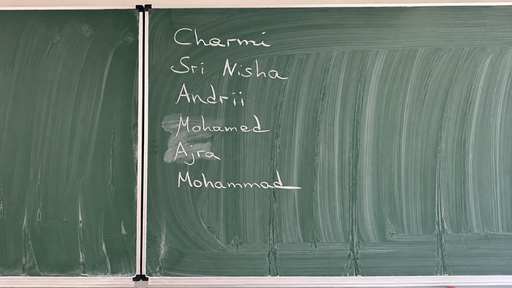 Charmi
Sri Nisha
Andrii
Mohamed
Ajra
Mohammad